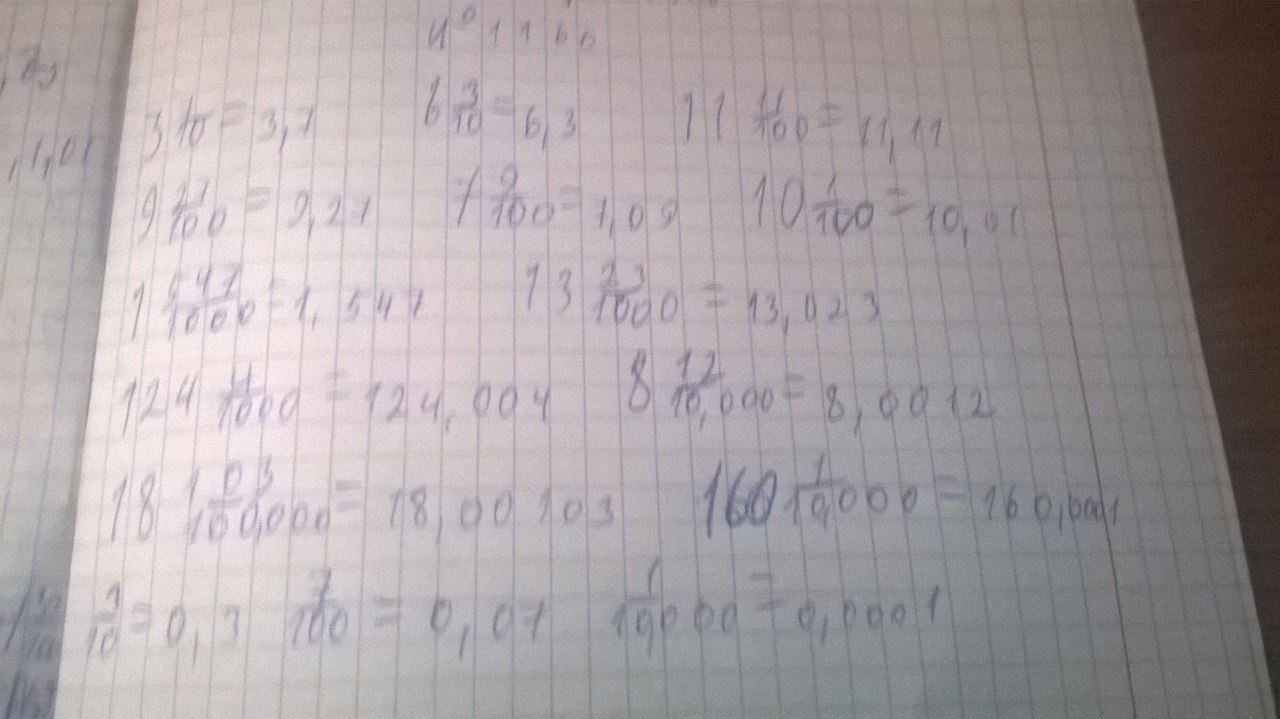 N° 1166
3 1/10 = 3,7 6 3/10 = 6,3 11 11/100 = 11,11
9 21/100 = 9,21 7 9/100 = 7,09 10 1/100 = 10,01
1 547/1000 = 1,547 13 23/1000 = 13,023
124 4/1000 = 124,004 8 12/10,000 = 8,0012
18 103/100,000 = 18,00103 160 1/10,000 = 160,0001
3/10 = 0,3 7/100 = 0,07 1/10,000 = 0,0001